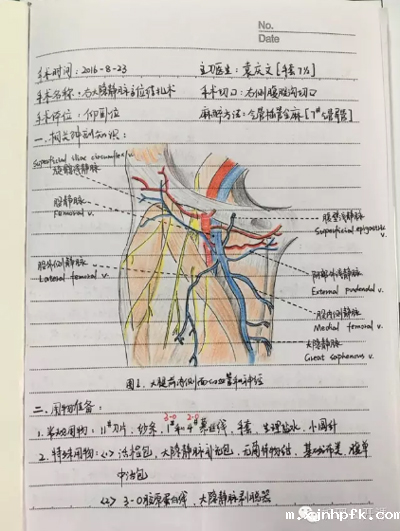 No.
Date
手术时间：2016-8-23 主刀医生：袁庆文[手套7½]
手术名称：右大隐静脉高位结扎术 手术切口：右侧腹股沟切口
手术体位：仰卧位 麻醉方法：全管插管全麻[7#管]
一.相关解剖知识：
Superficial iliac circumflex v.
旋髂浅静脉
股静脉
Femoral v.
股外侧静脉
Lateral femoral v.
腹壁浅静脉
Superficial epigastric v.
阴部外静脉
External pudendal v.
股内侧静脉
Medial femoral v.
大隐静脉
Great saphenous v.
图1.大腿前内侧面浅血管和神经
二.用物准备：
2-0 2-0
1.常规用物：11#刀片，纱条，1#和4#慕丝线，手套，生理盐水，小圆针
2.特殊用物：<1>
大隐静脉补充包，无菌持物钳，基础布类，腹单
中治包
<2> 3-0胶原蛋白线，大隐静脉剥脱器
m.xinhpfk.com